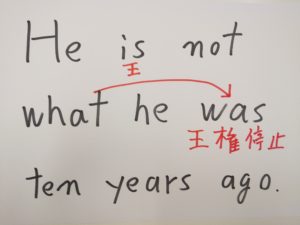 He is not
王
what he was
王権停止
ten years ago.